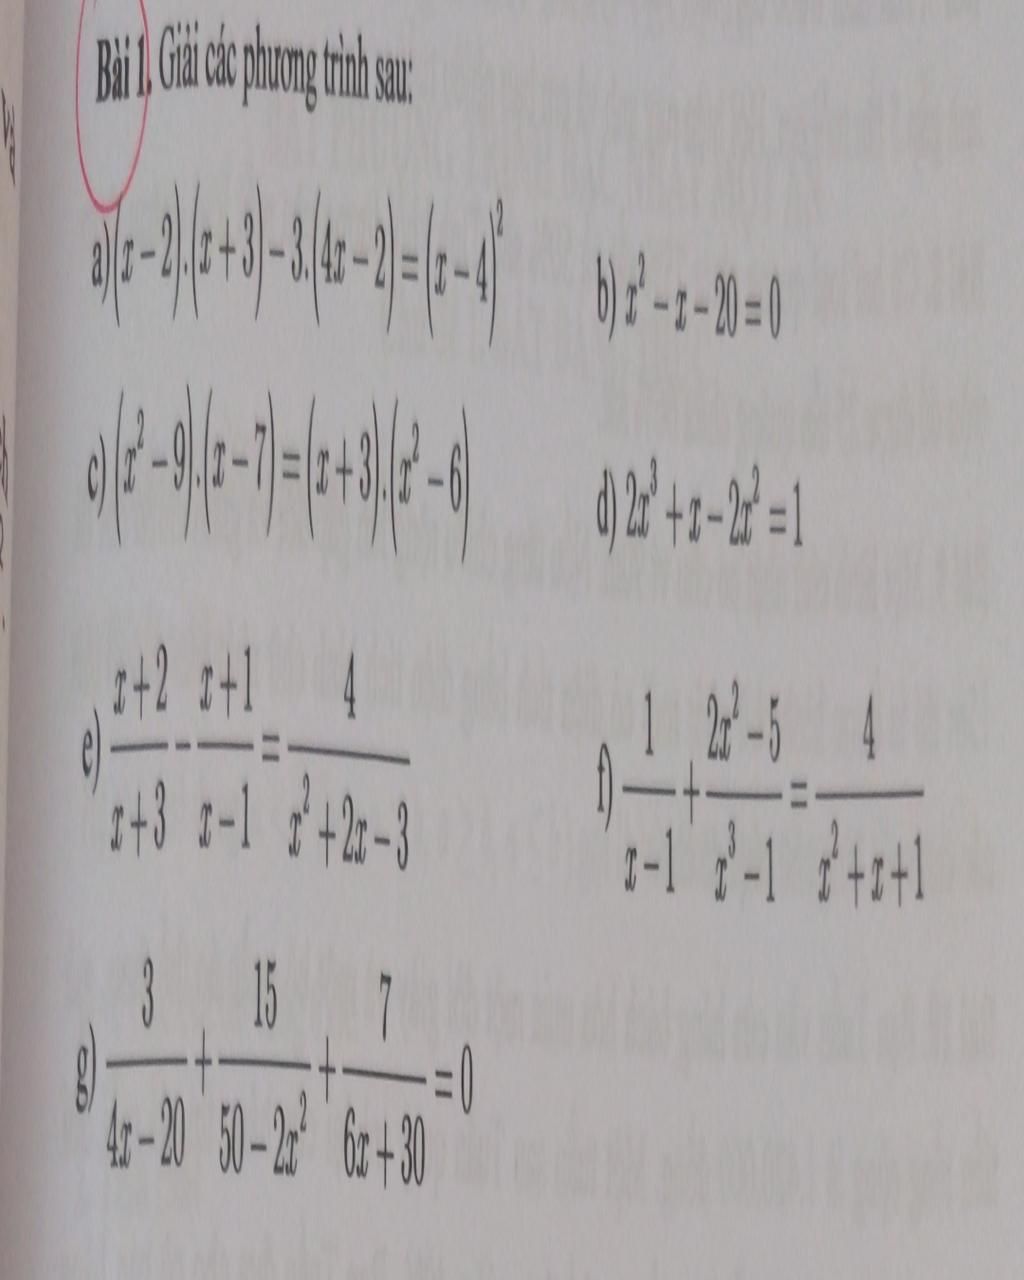 Bài 1. Giải các phương trình sau:
a) (x − 2).(x + 3) − 3.(4x − 2) = (x − 4)² b) x² − x − 20 = 0
c) (x² − 9).(x − 7) = (x + 3).(x² − 6) d) 2x³ + x − 2x² = 1
e) (x+2)/(x+3) - (x+1)/(x−1) = 4/(x² + 2x − 3) f) 1/(x−1) + (2x² − 5)/(x³ − 1) = 4/(x² + x + 1)
g) 3/(4x − 20) + 15/(50 − 2x²) + 7/(6x + 30) = 0